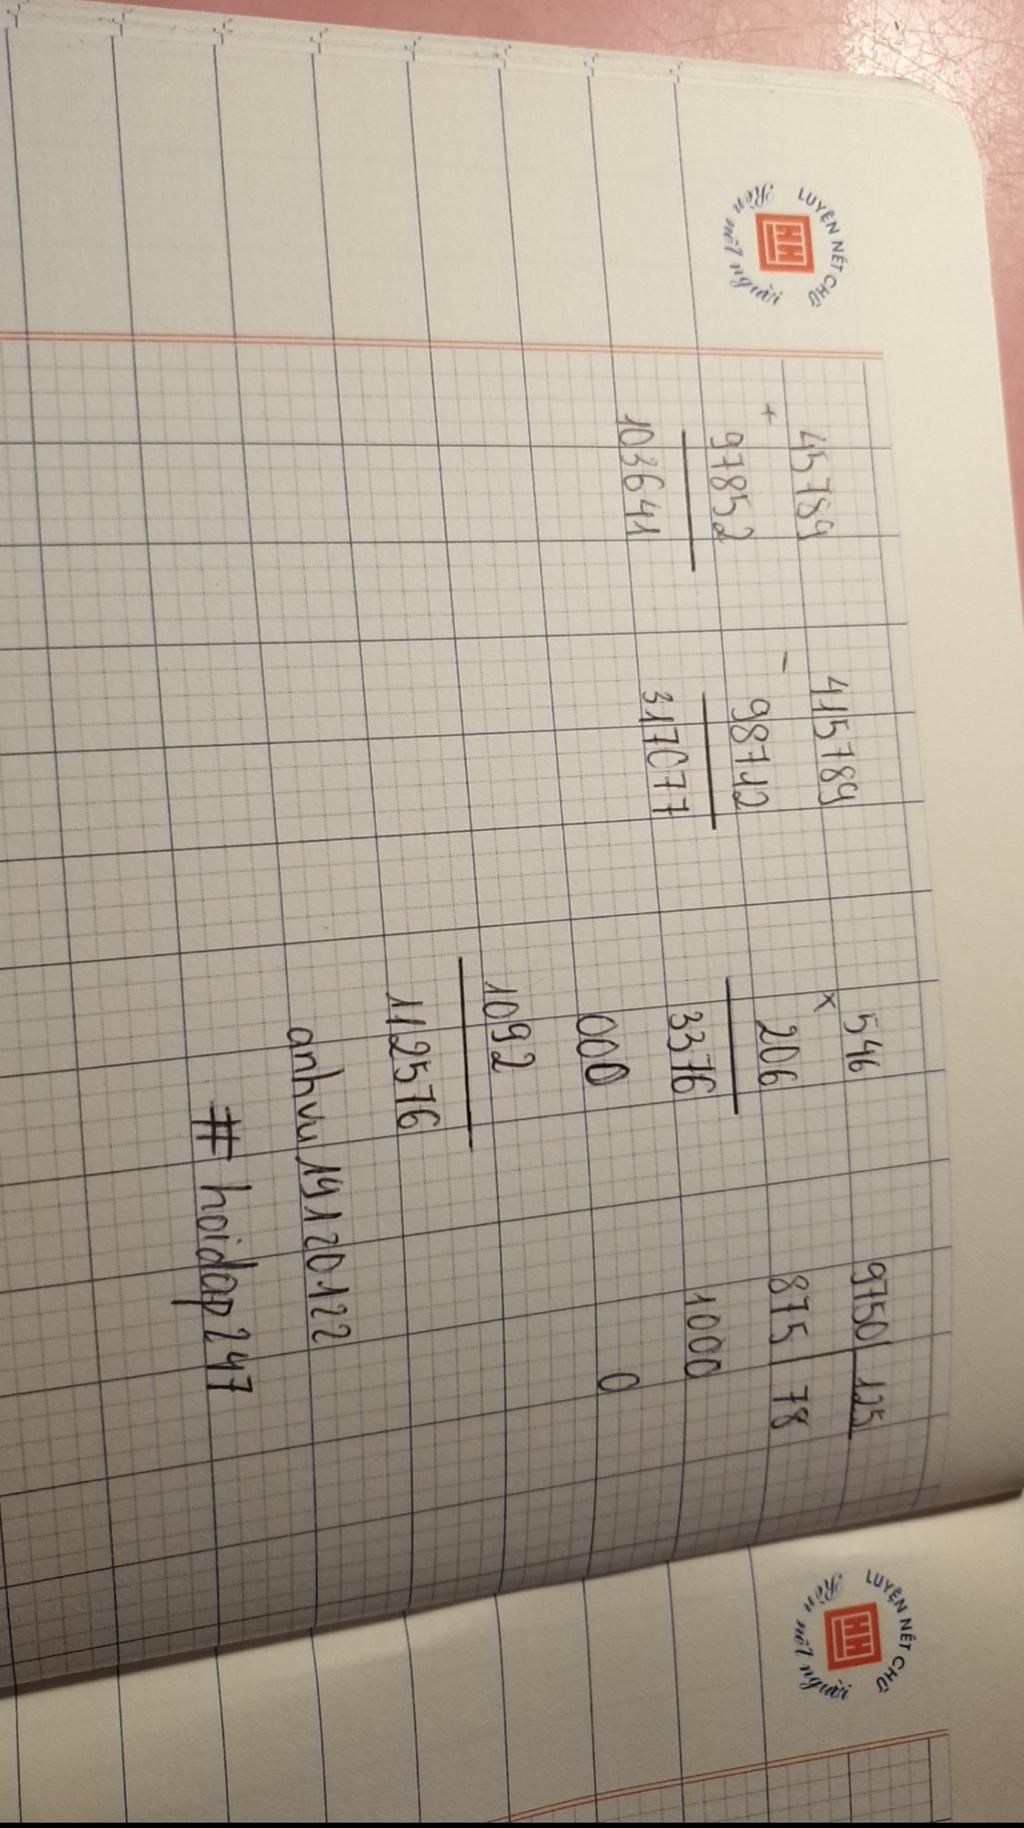 LUYỆN NÉT CHỮ
HH
Rèn nết người
45789
+
97852
103641
415789
-
98712
317077
546
x
206
3376
000
1092
112576
9750 125
875 78
1000
0
anhvu19120122
# hoidap247
LUYỆN NÉT CHỮ
HH
Rèn nết người